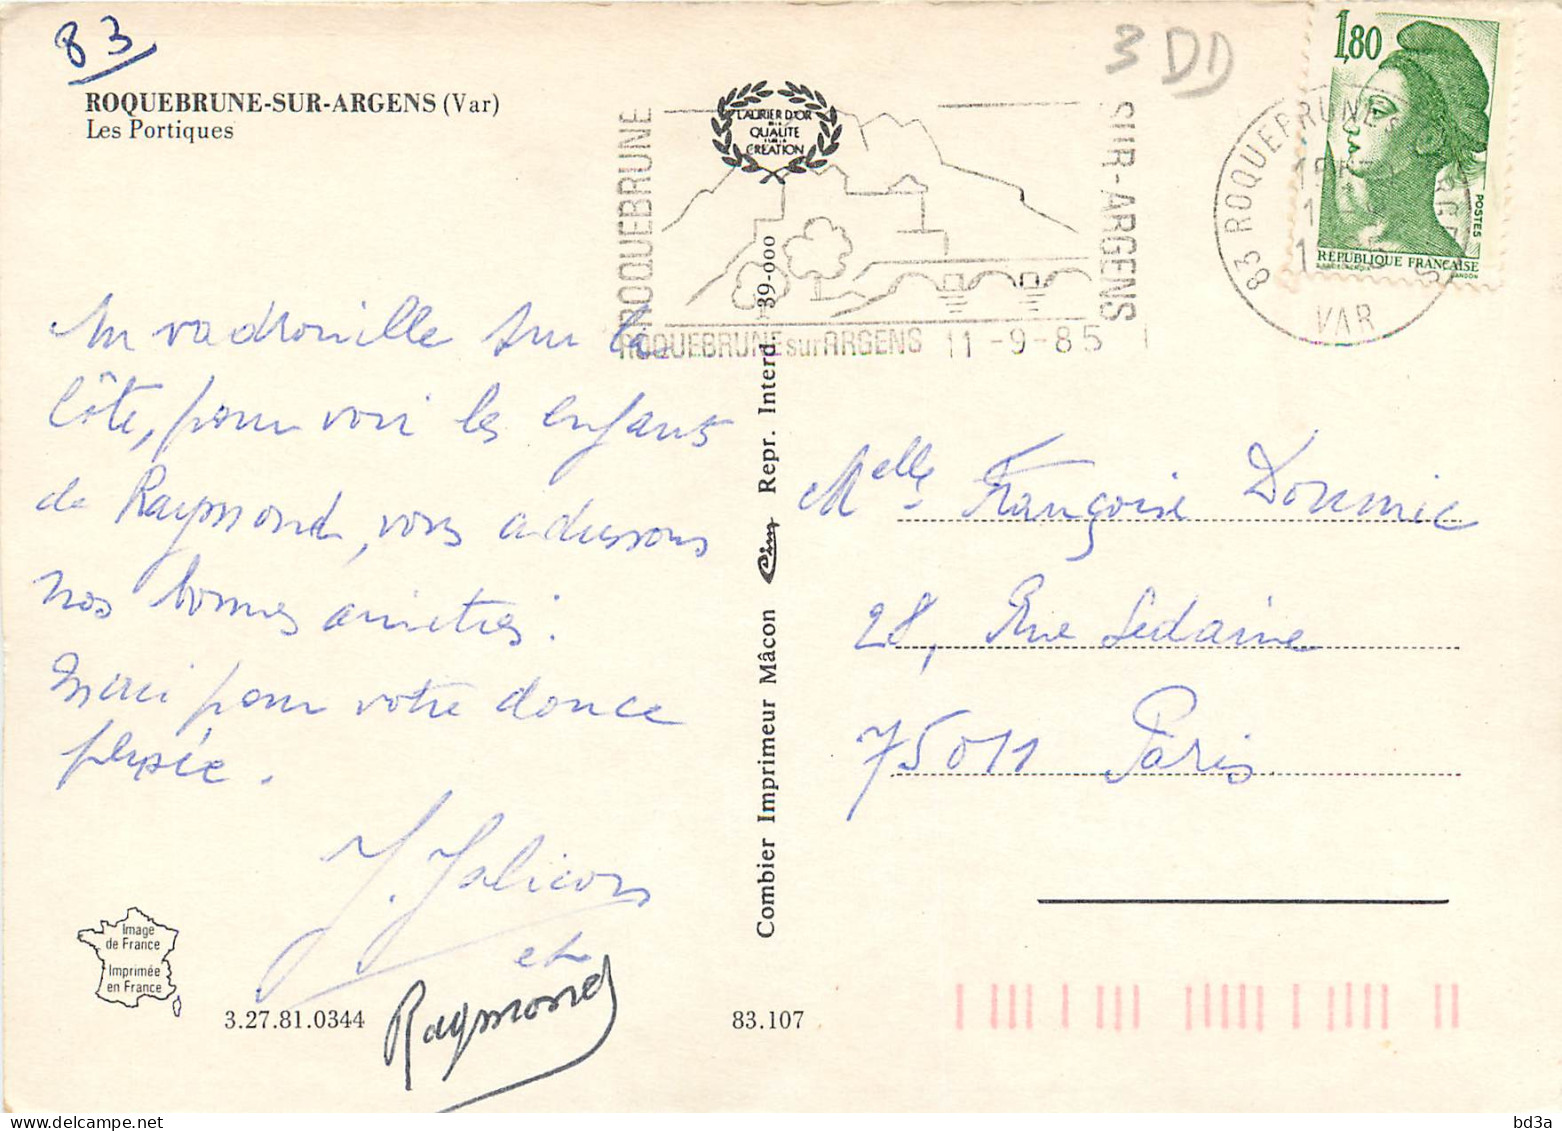 83
3 DD
ROQUEBRUNE-SUR-ARGENS (Var)
Les Portiques
LAURIER D'OR
DE LA
QUALITÉ
CRÉATION
ROQUEBRUNE
SUR-ARGENS
ROQUEBRUNE sur ARGENS 11-9-85
1,80
POSTES
RÉPUBLIQUE FRANÇAISE
GANDON
83 ROQUEBRUNE S
VAR
En vadrouille sur la
Côte, pour voir les enfants
de Raymond, vous adressons
nos bonnes amitiés.
Merci pour votre douce
pensée.
et
Raymond
Melle Françoise Doumic
28, Rue Sedaine
75011 Paris
Combier Imprimeur Mâcon Cim Repr. Interd. 39-000
Image
de France
Imprimée
en France
3.27.81.0344
83.107
bd3a